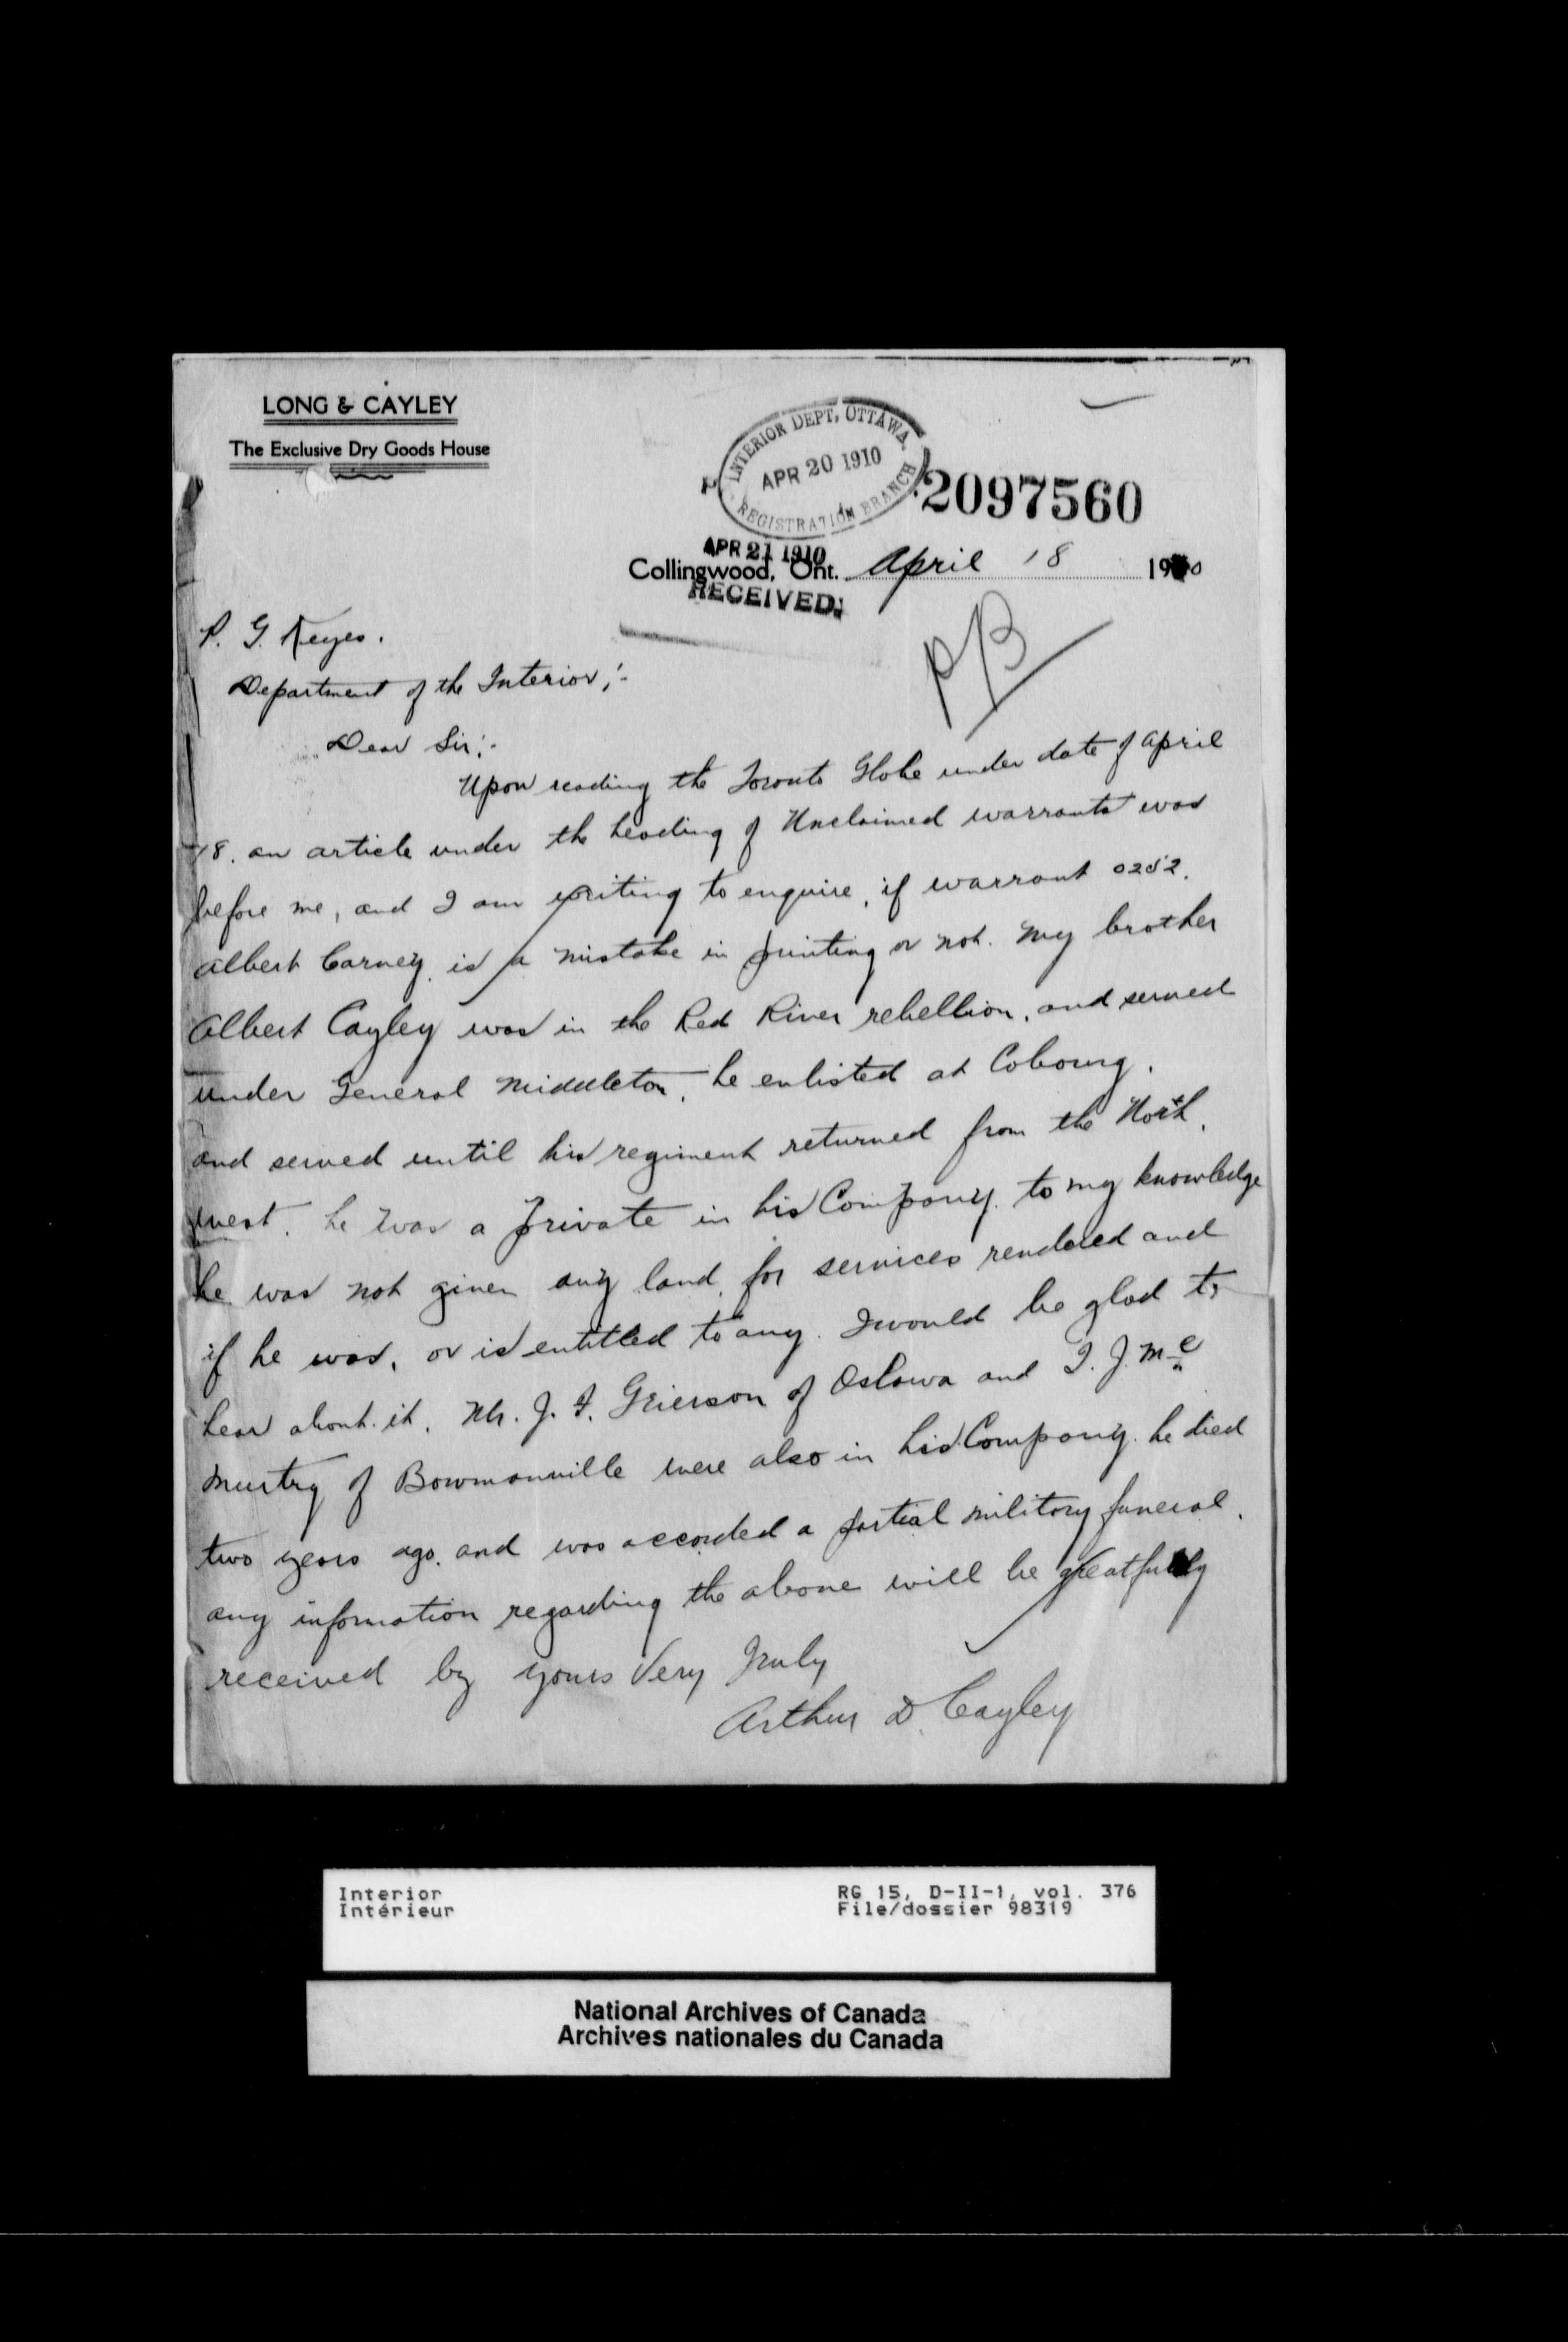 LONG & CAYLEY
The Exclusive Dry Goods House
INTERIOR DEPT, OTTAWA.
APR 20 1910
REGISTRATION BRANCH
2097560
APR 21 1910
Collingwood, Ont. April 18 1910
RECEIVED.
PB
P. G. Keyes.
Department of the Interior;-
Dear Sir:-
Upon reading the Toronto Globe under date of April
18. an article under the heading of Unclaimed warrants was
before me, and I am writing to enquire, if warrant 0252.
Albert Carney, is a mistake in printing or not. My brother
Albert Cayley was in the Red River rebellion, and served
under General Middleton, he enlisted at Cobourg,
and served until his regiment returned from the North,
west. he was a private in his Company. to my knowledge
he was not given any land, for services rendered and
if he was, or is entitled to any. I would be glad to
hear about it. Mr. J. F. Grierson of Oshawa and T. J. Mc
Murtry of Bowmanville were also in his Company. he died
two years ago. and was accorded a partial military funeral.
any information regarding the above will be greatfully
received by yours Very Truly
Arthur D. Cayley
Interior
Intérieur
RG 15, D-II-1, vol. 376
File/dossier 98319
National Archives of Canada
Archives nationales du Canada